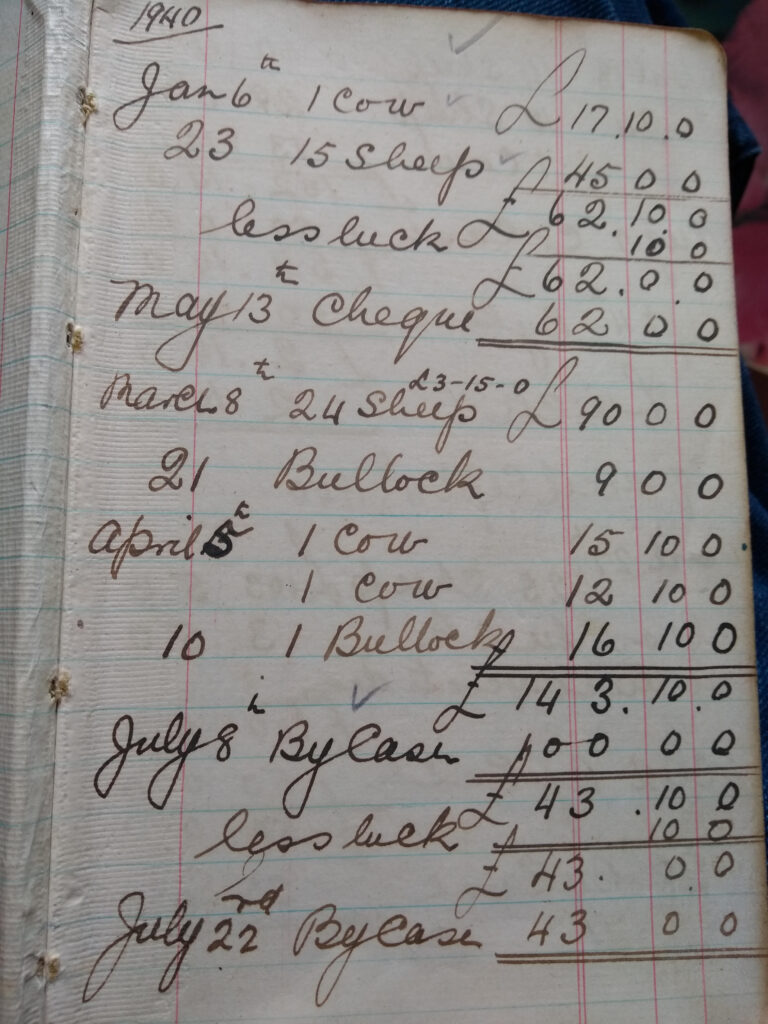 1940
Jan 6th 1 Cow £ 17.10.0
23 15 Sheep 45 0 0
£ 62.10.0
less luck 10 0
£ 62.0.0
May 13th Cheque 62 0 0
March 8th 24 Sheep £3-15-0 £ 90 0 0
21 Bullock 9 0 0
April 5th 1 Cow 15 10 0
1 Cow 12 10 0
10 1 Bullock 16 10 0
£ 143.10.0
July 8th By Cash 100 0 0
£ 43.10 0
less luck 10 0
£ 43. 0.0
July 22rd By Cash 43 0 0